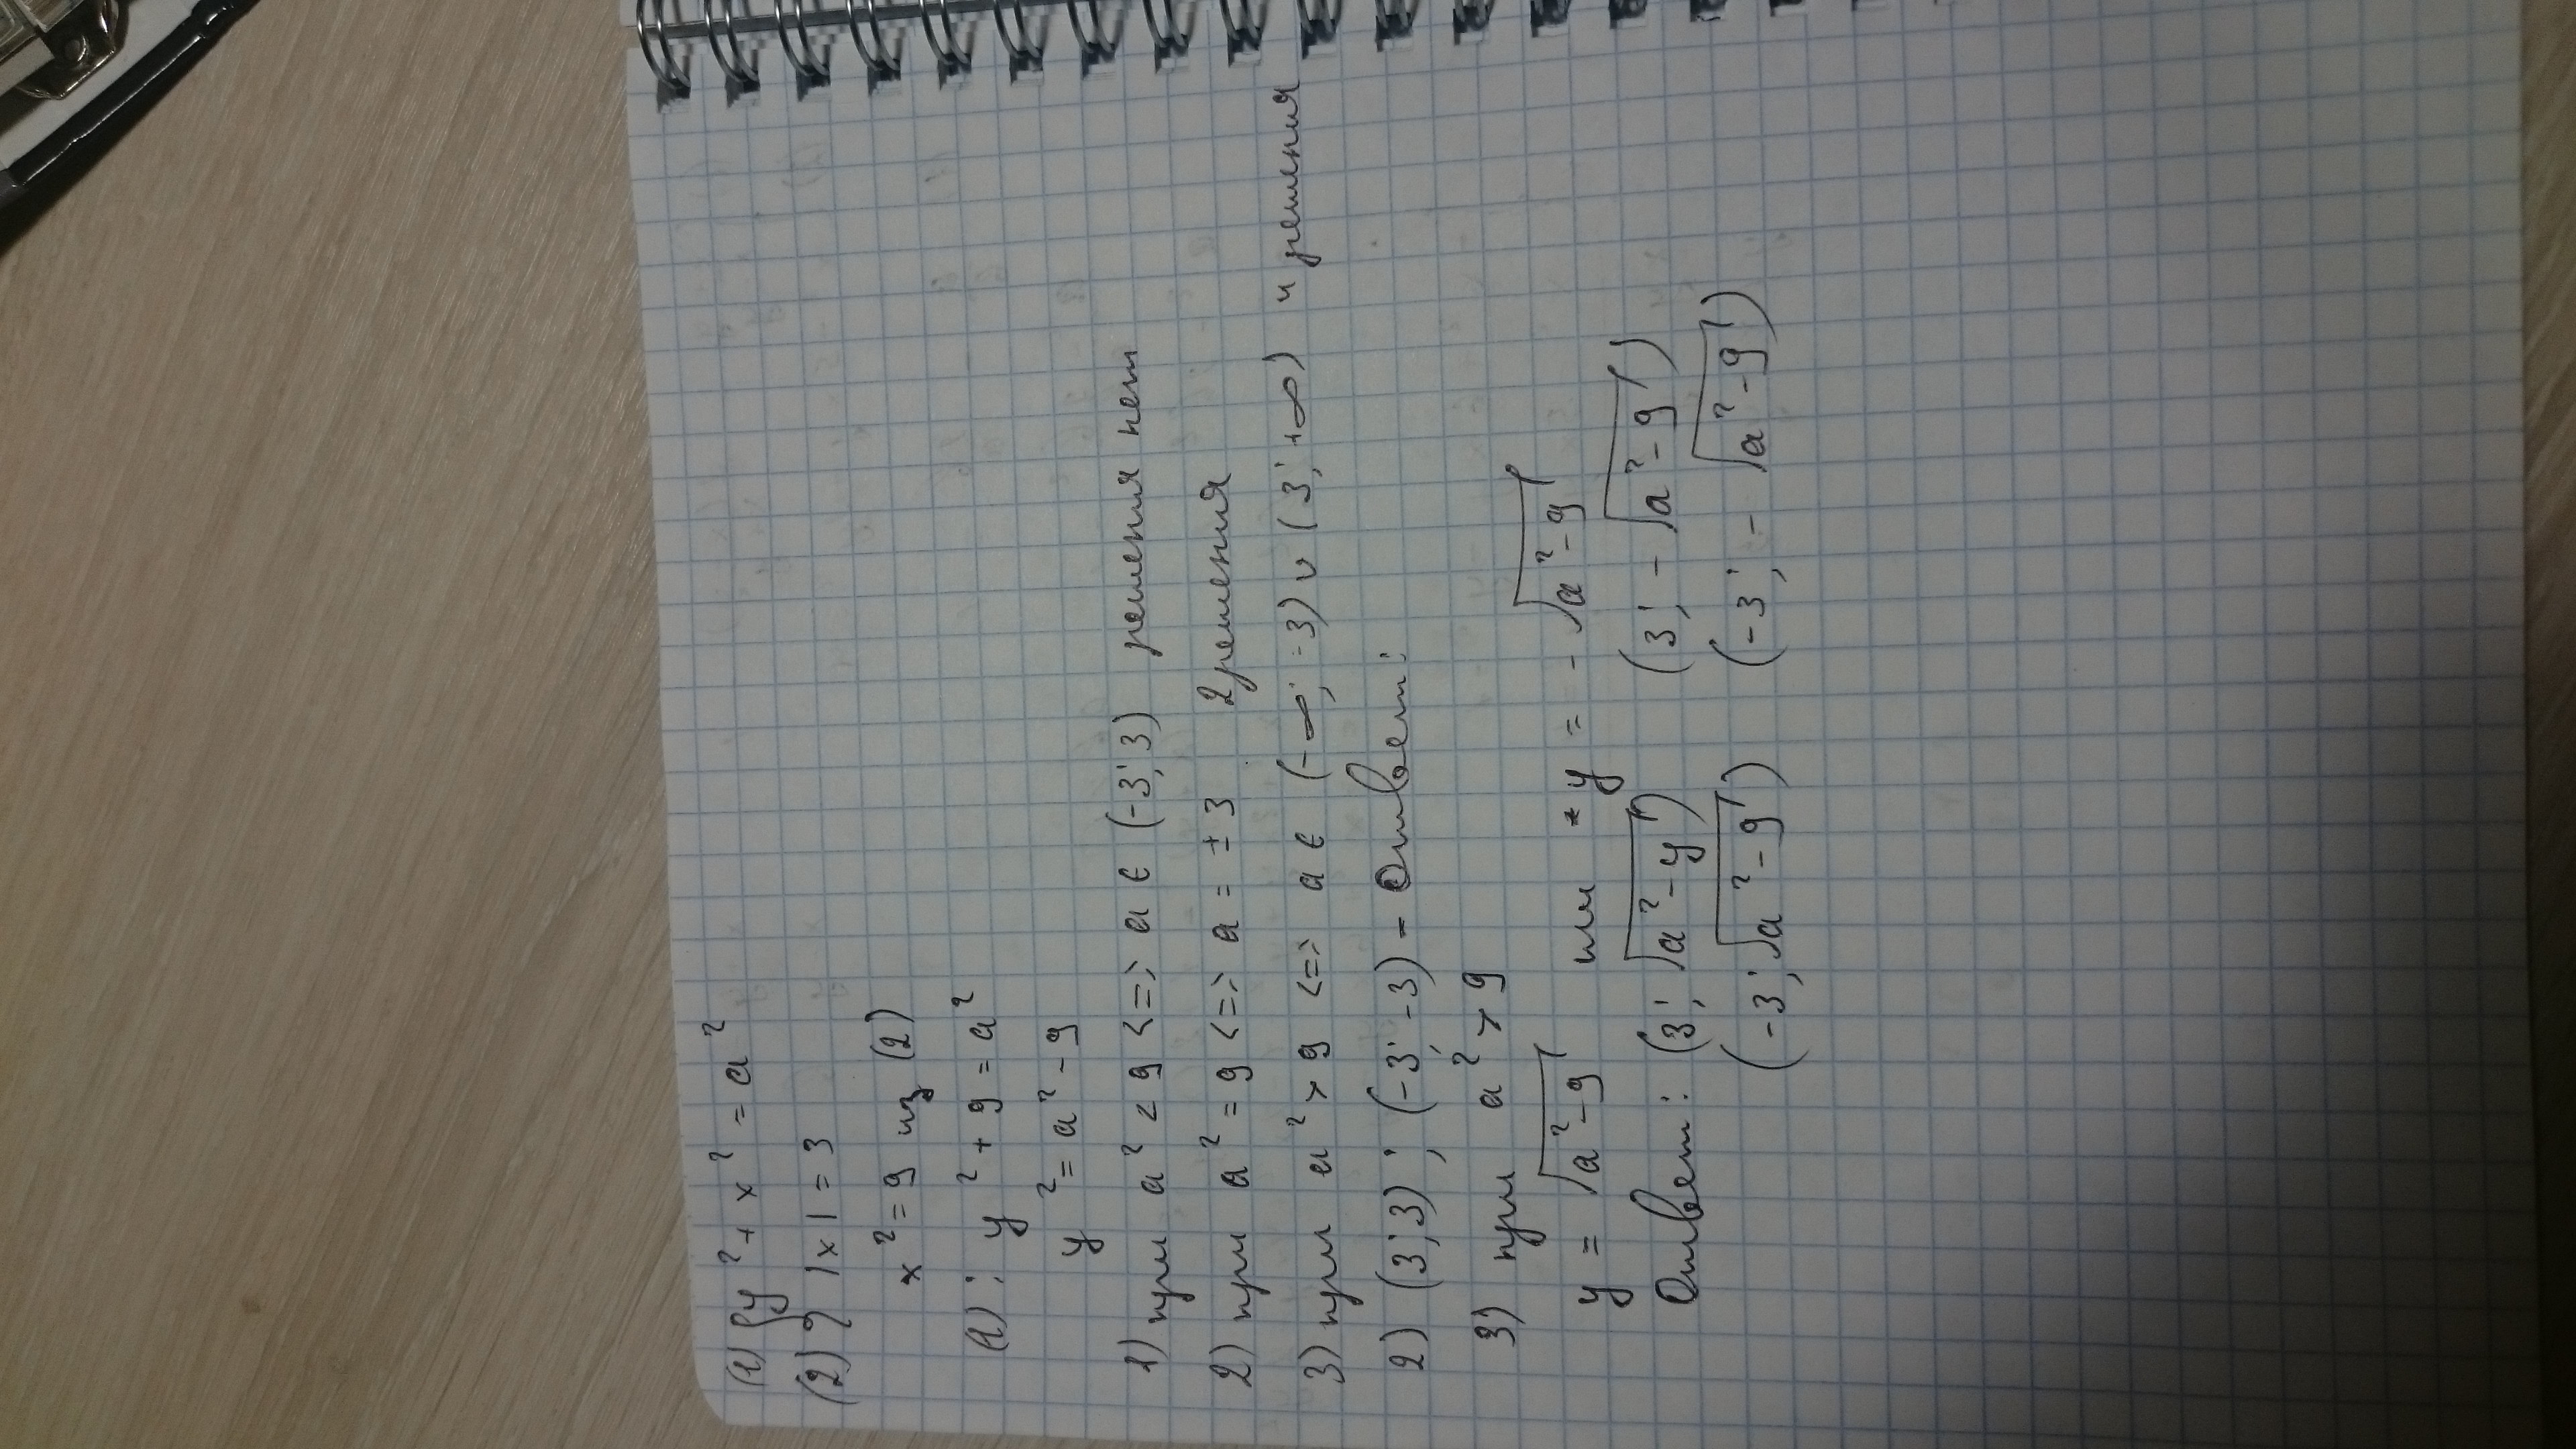 (1) { y² + x² = a²
(2) { |x| = 3
x² = 9 из (2)
(1) : y² + 9 = a²
y² = a² - 9
1) при a² < 9 <=> a ∈ (-3; 3) решения нет
2) при a² = 9 <=> a = ± 3 2 решения
3) при a² > 9 <=> a ∈ (-∞; -3) ∪ (3; +∞) 4 решения
2) (3; 3) ; (-3; -3) - Ответ:
3) при a² > 9
y = √a² - 9 или y = - √a² - 9
Ответ: (3; √a² - y) (3; - √a² - 9)
(-3; √a² - 9) (-3; - √a² - 9)